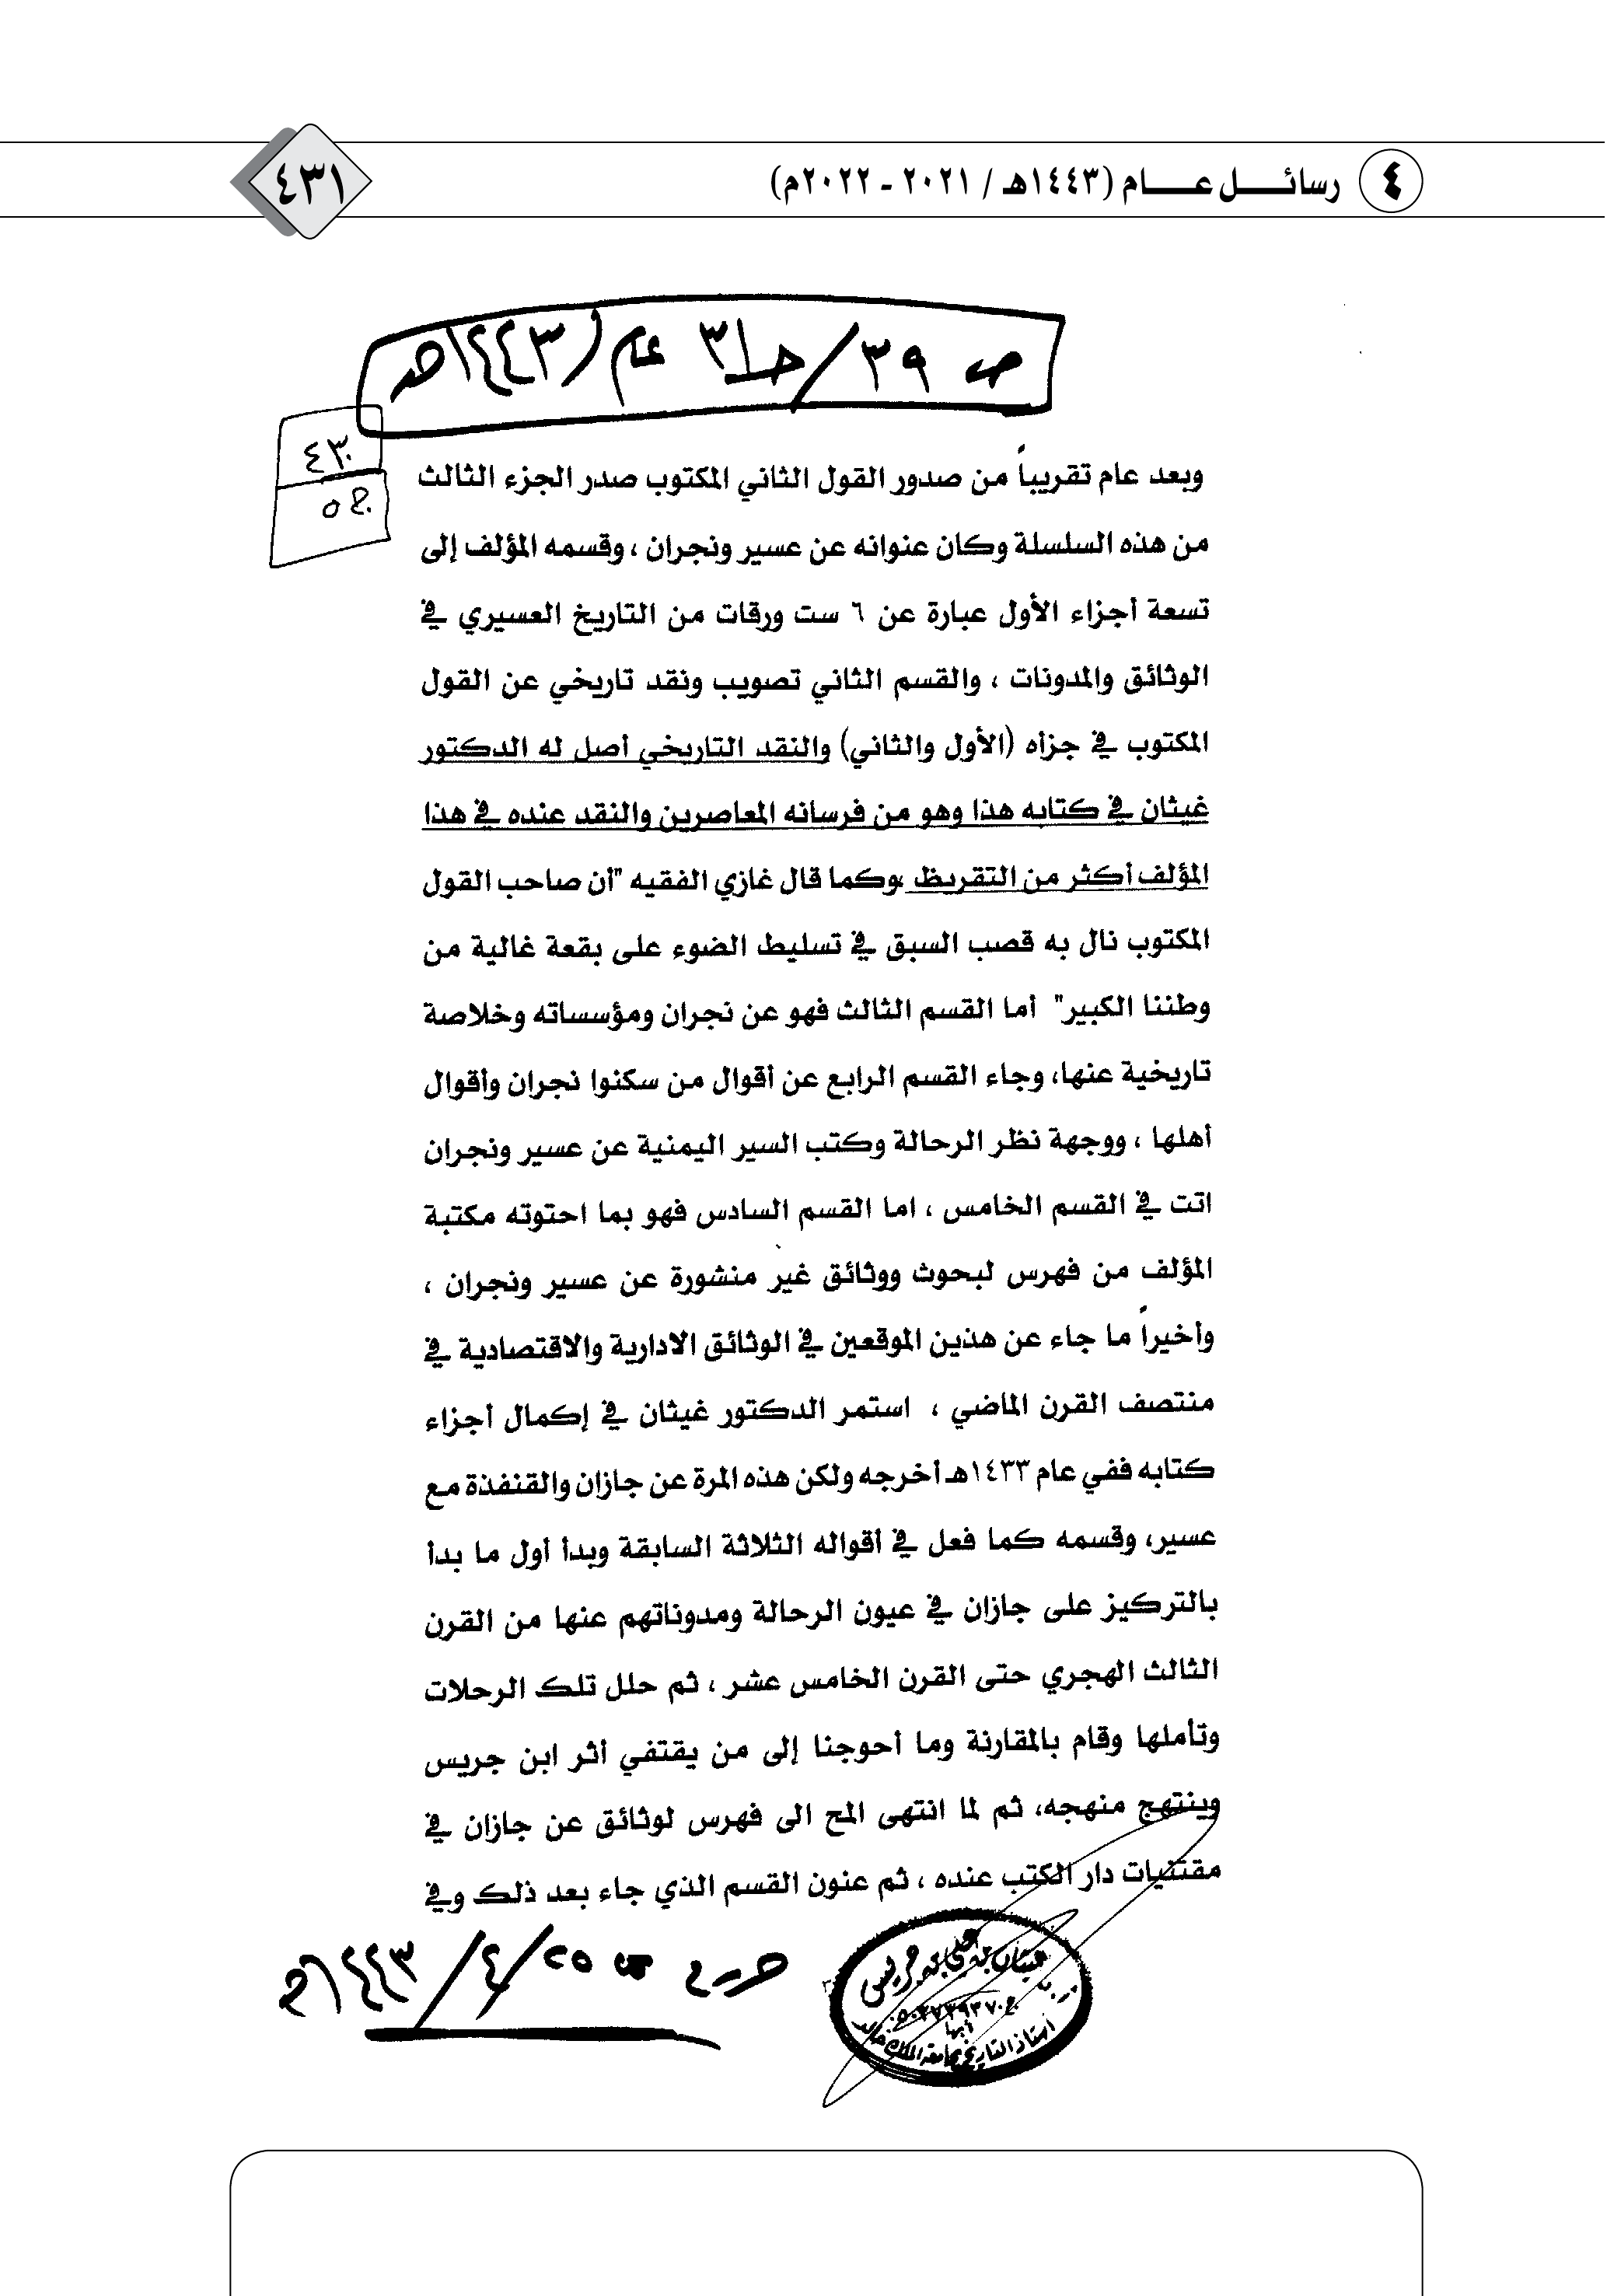 ٤ رسائـــل عـــام (١٤٤٣هـ / ٢٠٢١ - ٢٠٢٢م)
٤٣١
ص ٣٩ / حـ ٣١ عام (١٤٤٣هـ
٤٣٠
وبعد عام تقريباً من صدور القول الثاني المكتوب صدر الجزء الثالث
من هذه السلسلة وكان عنوانه عن عسير ونجران ، وقسمه المؤلف إلى
تسعة أجزاء الأول عبارة عن ٦ ست ورقات من التاريخ العسيري في
الوثائق والمدونات ، والقسم الثاني تصويب ونقد تاريخي عن القول
المكتوب في جزأه (الأول والثاني) والنقد التاريخي أصل له الدكتور
غيثان في كتابه هذا وهو من فرسانه المعاصرين والنقد عنده في هذا
المؤلف أكثر من التقريظ ،وكما قال غازي الفقيه "أن صاحب القول
المكتوب نال به قصب السبق في تسليط الضوء على بقعة غالية من
وطننا الكبير" أما القسم الثالث فهو عن نجران ومؤسساته وخلاصة
تاريخية عنها، وجاء القسم الرابع عن أقوال من سكنوا نجران وأقوال
أهلها ، ووجهة نظر الرحالة وكتب السير اليمنية عن عسير ونجران
اتت في القسم الخامس ، اما القسم السادس فهو بما احتوته مكتبة
المؤلف من فهرس لبحوث ووثائق غير منشورة عن عسير ونجران ،
وأخيراً ما جاء عن هذين الموقعين في الوثائق الادارية والاقتصادية في
منتصف القرن الماضي ، استمر الدكتور غيثان في إكمال أجزاء
كتابه ففي عام ١٤٣٣هـ أخرجه ولكن هذه المرة عن جازان والقنفذة مع
عسير، وقسمه كما فعل في أقواله الثلاثة السابقة وبدأ أول ما بدأ
بالتركيز على جازان في عيون الرحالة ومدوناتهم عنها من القرن
الثالث الهجري حتى القرن الخامس عشر ، ثم حلل تلك الرحلات
وتأملها وقام بالمقارنة وما أحوجنا إلى من يقتفي أثر ابن جريس
وينتهج منهجه، ثم لما انتهى المح الى فهرس لوثائق عن جازان في
مقتنيات دار الكتب عنده ، ثم عنون القسم الذي جاء بعد ذلك وفي
غيثان بن علي بن جريس
أبها
أستاذ التاريخ بجامعة الملك خالد
٢٥ / ٤ / ١٤٤٣هـ